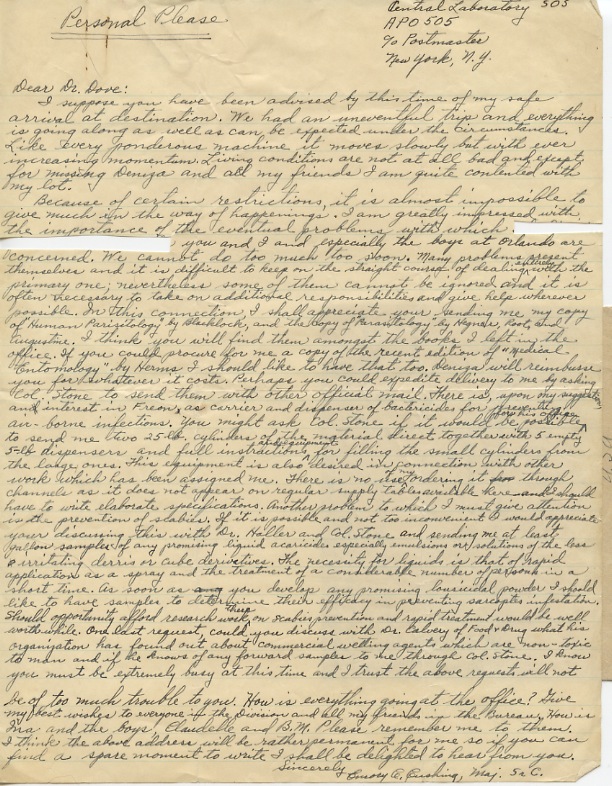 Personal Please
Central Laboratory 505
APO 505
c/o Postmaster
New York, N.Y.
Dear Dr. Dove:
I suppose you have been advised by this time of my safe
arrival at destination. We had an uneventful trip and everything
is going along as well as can be expected under the circumstances.
Like every ponderous machine it moves slowly but with ever
increasing momentum. Living conditions are not at all bad and except
for missing Deniza and all my friends I am quite contented with
my lot.
Because of certain restrictions, it is almost impossible to
give much in the way of happenings. I am greatly impressed with
the importance of the eventual problems with which
you and I and especially the boys at Orlando are
concerned. We cannot do too much too soon. Many problems present
themselves and it is difficult to keep on the straight course of dealing with the
primary one; nevertheless some of them cannot be ignored and it is
often necessary to take on additional responsibilities and give help wherever
possible. In this connection, I shall appreciate your sending me my copy
of Human Parisitology by Blacklock, and the copy of Parasitology by Hegner, Root, and
Augustine. I think you will find them amongst the books I left in the
office. If you could procure for me a copy of the recent edition of "Medical
Entomology" by Herms I should like to have that too. Deniza will reimburse
you for whatever it costs. Perhaps you could expedite delivery to me by asking
Col. Stone to send them with other official mail. There is, upon my suggestion
and interest in Freon, as carrier and dispenser of bactericides for preventing
air-borne infections. You might ask Col. Stone if it would be possible
to send me two 25-lb. cylinders of this material direct together with 5 empty
5-lb dispensers and full instructions and equipment for filling the small cylinders from
the large ones. This equipment is also desired in connection with other
work which has been assigned me. There is no use of my ordering it through
channels as it does not appear on regular supply tables available here and I should
have to write elaborate specifications. Another problem to which I must give attention
is the prevention of scabies. If it is possible and not too inconvenient I would appreciate
your discussing this with Dr. Haller and Col. Stone and sending me at least
gallon samples of any promising liquid acaricides especially emulsions or solutions of the less
irritating derris or cube derivatives. The necessity for liquids is that of rapid
application as a spray and the treatment of a considerable number of persons in a
short time. As soon as you develop any promising lousicidal powder I should
like to have samples to determine their efficacy in preventing sarcoptes infestation.
Should opportunity afford research work, on scabies prevention and rapid treatment would be well
worth while. One last request, could you discuss with Dr. Calvery of Food & Drug what his
organization has found out about commercial wetting agents which are non-toxic
to man and if he knows of any forward samples to me through Col. Stone. I know
you must be extremely busy at this time and I trust the above requests will not
be of too much trouble to you. How is everything going at the office? Give
my best wishes to everyone in the Division and all my friends in the Bureau. How is
Ina and the boys, Claudelle and B.M. Please remember me to them.
I think the above address will be rather permanent for me so if you can
find a spare moment to write I shall be delighted to hear from you.
Sincerely
Emory C. Cushing, Maj. Sn C.